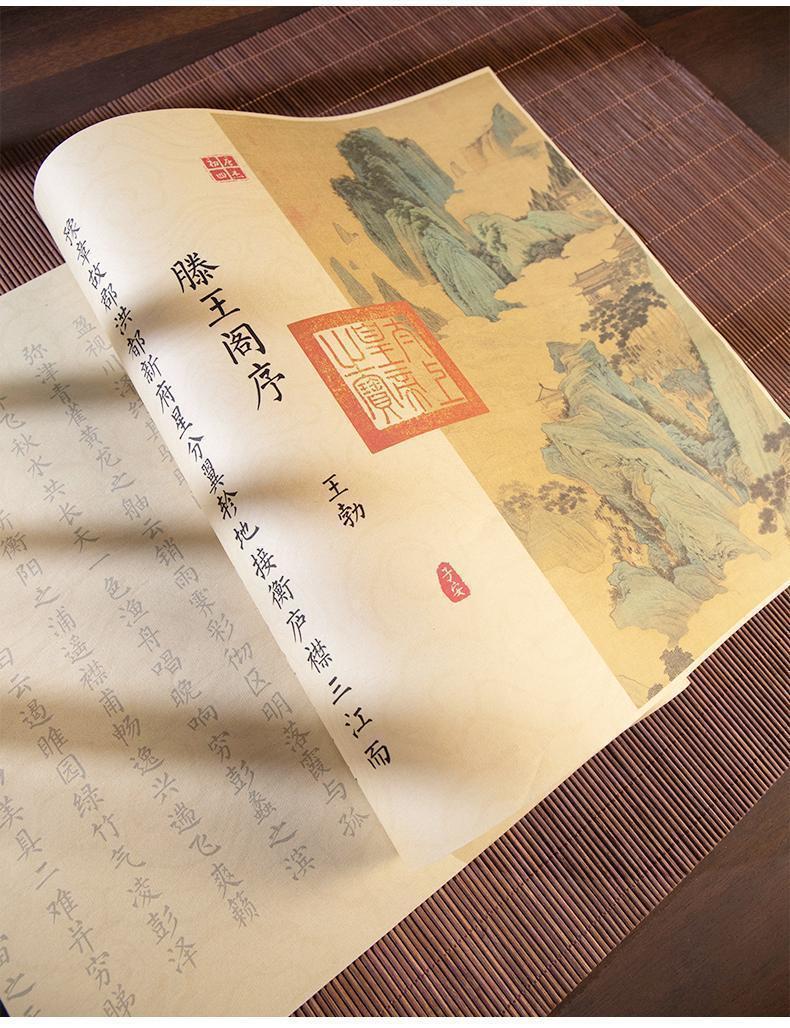 太上皇帝之寶
初唐四杰
滕王阁序
王勃
子安
豫章故郡洪都新府星分翼轸地接衡庐襟三江而
盈视川
弥津青雀黄龙之舳云销雨霁彩彻区明落霞与孤
飞秋水共长天一色渔舟唱晚响穷彭蠡之滨
衡阳之浦遥襟甫畅逸兴遄飞爽籁
云遏睢园绿竹气凌彭泽
美具二难并穷睇
宙之